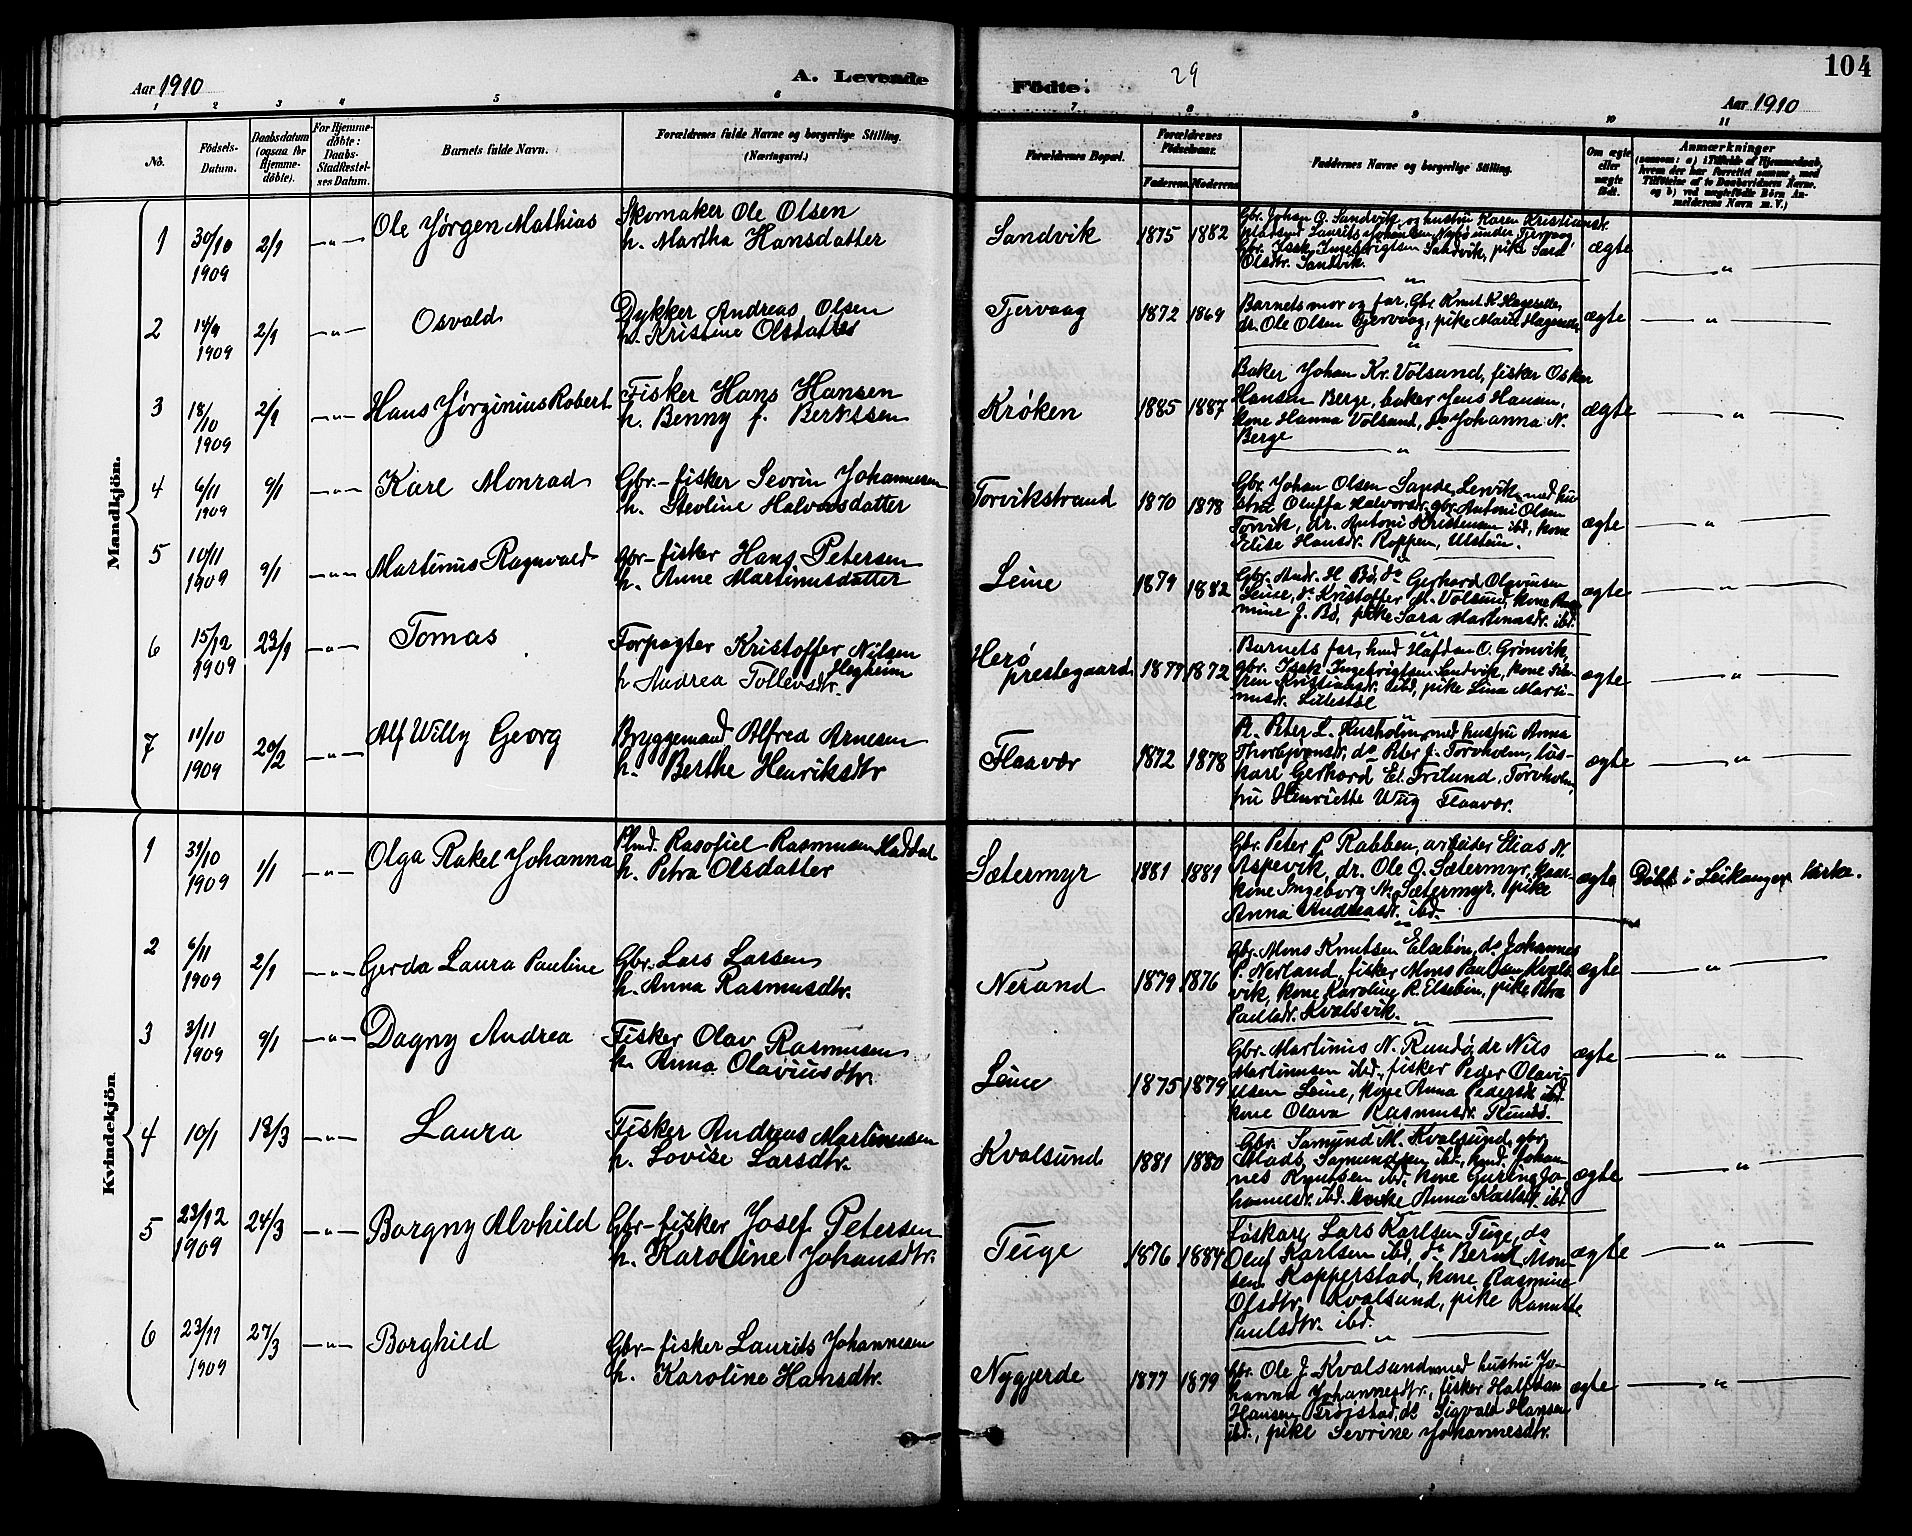 Aar 1910
A. Levende
Födte:
29
104
Aar 1910
1 2 3 4 5 6 7 8 9 10 11
No.
Födsels-
Datum.
Daabsdatum
(ogsaa for
Hjemme-
döbte).
For Hjemme-
döbte:
Daabs-
Stadfæstel-
ses Datum.
Barnets fulde Navn.
Forældrenes fulde Navne og borgerlige Stilling.
(Næringsvei.)
Forældrenes Bopæl.
Forældrenes
Födselsaar.
Faderens. Moderens.
Faddernes Navne og borgerlige Stilling.
Om ægte
eller
uægte
födt.
Anmærkninger
Mandkjön.
1 30/10 1909 2/1 -"- Ole Jørgen Mathias
Skomaker Ole Olsen
h. Martha Hansdatter
Sandvik 1875 1882
Gbr. Johan O. Sandvik og hustru Karen Kristiansdr.
Gbr. Isak Ingebrigtsen Sandvik, pike Sara
Olsdtr. Sandvik.
ægte "
2 14/9 1909 2/1 -"- Osvald
Dykker Andreas Olsen
h. Kristine Olsdatter
Tjervaag 1872 1869
Barnets mor og far, Gbr. Knut K. Hageselle,
dr. Ole Olsen Tjervaag, pike Marie Hageselle
ægte "
3 18/10 1909 2/1 -"- Hans Jørginius Robert
Fisker Hans Hansen
h. Benny f. Berntsen
Krøken 1885 1887
Baker Johan Kr. Volsund, fisker Oskar
Hansen Berge, baker Jens Hansen,
kone Hanna Volsund, do Johanna N.
Berge
ægte "
4 6/11 1909 9/1 -"- Kare Monrad
Gbr.-fisker Sevrin Johannesen
h. Stevline Halvorsdatter
Torvikstrand 1870 1878
Gbr. Johan Olsen Sande, Lervik med hu-
stru Oluffa Halvorsdr. gbr. Antoni Olsen
Torvik, dr. Antoni Kristensen ibd., kone
Elise Hansdr. Roppen, Ulstein.
ægte "
5 10/11 1909 9/1 -"- Martinus Ragnvald
Gbr-fisker Hans Petersen
h. Anne Martinusdatter
Leine 1879 1882
Gbr. Andr. H. Bø, do Gerhard Olavinsen
Leine, do Kristoffer M. Volsund, kone Ras-
mine J. Bø, pike Sara Martinusdr. ibd.
ægte "
6 15/12 1909 23/1 -"- Tomas
Forpagter Kristoffer Nilsen
Hegheim
h Andrea Tollevsdtr.
Herø
prestegaard 1877 1872
Barnets far, husd Halfdan O. Grønvik,
gbr. Isak Ingebrigtsen Sandvik, kone Ka-
ren Kristiansdr. ibd, pike Lina Marti-
nusdr. Lillestøl
ægte "
7 11/10 1909 20/2 -"- Alf Willy Georg
Bryggemand Alfred Arnesen
h. Berthe Henriksdtr
Flaavær 1872 1878
Pl. Peter L. Husholm med hustru Anna
Thorbjørnsdr, do Peter J. Torvholm, løs-
kare Gerhard El. Frilund, Torvholm,
fru Henriette Wiig Flaavær.
ægte "
Kvindekjön
1 31/10 1909 1/1 -"- Olga Rakel Johanna
Plmd. Rasofiel Rasmusen Haddal
h. Petra Olsdatter
Sætermyr 1881 1881
Gbr. Peter P. Rabben, arbeider Elias N.
Aspevik, dr. Ole O. Sætermyr,
kone Ingeborg M. Sætermyr, pike
Anna Andreasdr. ibd.
ægte Døbt i Leikanger kirke.
2 6/11 1909 2/1 -"- Gerda Laura Pauline
Gbr. Lars Larsen
h. Anna Rasmusdtr.
Nerand 1879 1876
Gbr. Mons Knutsen Elsebøn, do Johannes
P. Nerland, fisker Mons Paulsen Kvals-
vik, kone Karoline R. Elsebøn, pike Petra
Paulsdr. Kvalsvik.
ægte "
3 3/11 1909 9/1 -"- Dagny Andrea
Fisker Olav Rasmusen
h. Anna Olaviusdtr.
Leine 1875 1879
Gbr. Martinus N. Rundø, dr Nils
Martinusen ibd., fisker Peder Olavi-
usen Leine, kone Anna Pedersdr. ibd.
kone Olava Rasmusdr. Runde.
ægte "
4 10/1 13/3 -"- Laura
Fisker Andreas Martinusen
h. Lovise Larsdtr.
Kvalsund 1881 1880
Gbr. Samund M. Kvalsund, gbr.
Mads Samundsen ibd., husd. Johan-
nes Knutsen ibd. kone Guring Jo-
hannesdr. ibd. Anna Karlsdr. ibd
ægte "
5 23/12 1909 24/3 -"- Borgny Alvhild
Gbr-fisker Josef Petersen
h. Karoline Johansdtr.
Tuge 1876 1884
Løskare Lars Karlsen Tuge, do
Oluf Karlsen ibd, do Bernt Mon-
sen Kopperstad, kone Rasmine
Olsdtr. Kvalsund, pike Kanutte
Paulsdtr. ibd.
ægte "
6 23/11 1909 27/3 -"- Borghild
Gbr-fisker Laurits Johannesen
h. Karoline Hansdtr.
Nygjerde 1877 1879
Gbr. Ole J. Kvalsund med hustru Jo-
hanna Johannesdtr., fisker Halfdan
Hansen Frøistad, do Sigvald Hansen
ibd., pike Sevrine Johannesdtr.
ægte "